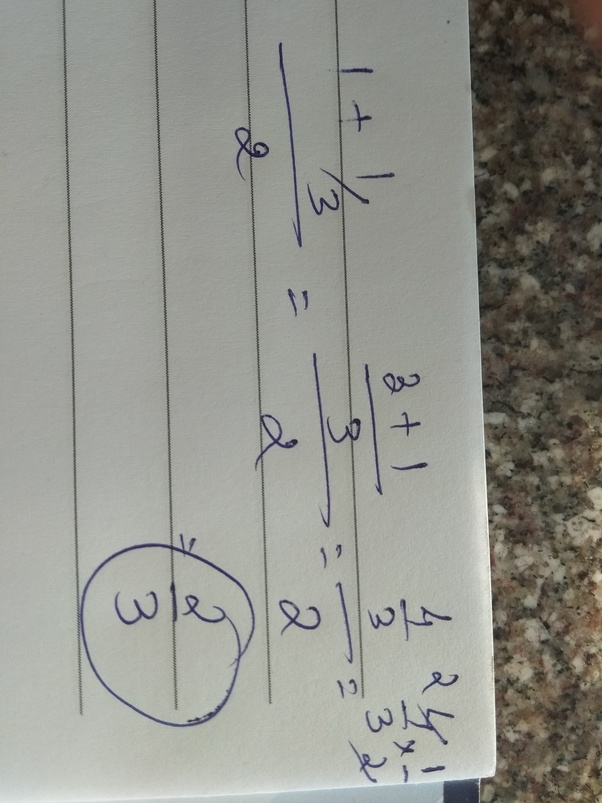 1 + 1/3 / 2 = (3 + 1)/3 / 2 = 4/3 / 2 = 4/3 × 1/2
= 2/3